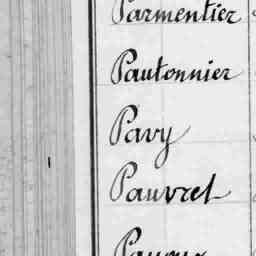 Parmentier
Pautonnier
Pavy
Pauvret